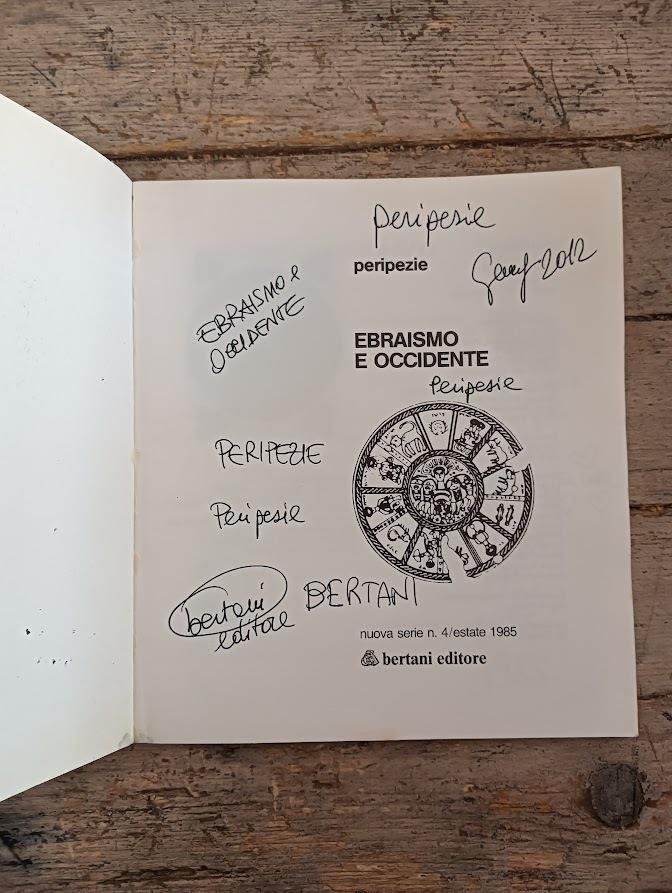 peripesie
peripezie
2012
EBRAISMO e
OCCIDENTE
EBRAISMO
E OCCIDENTE
peripesie
PERIPEZIE
Peripesie
bertani
editore
BERTANI
nuova serie n. 4/estate 1985
bertani editore